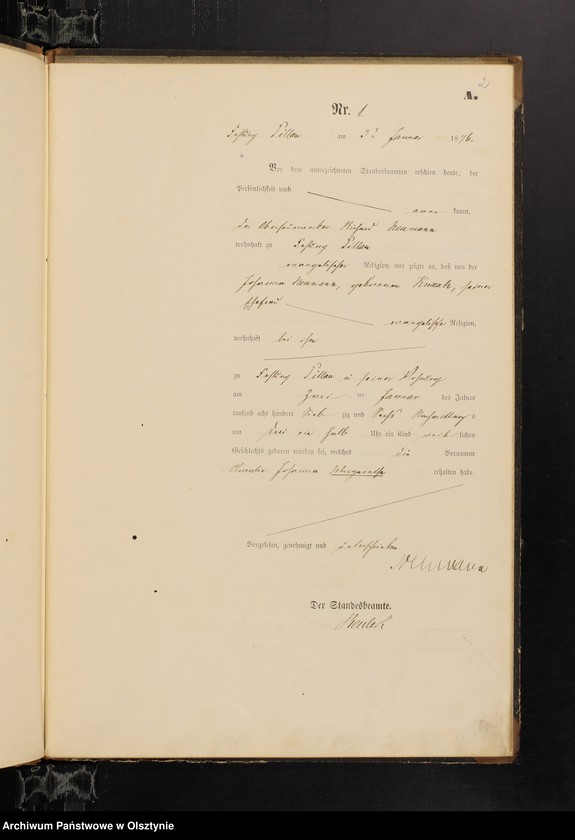 2
A.
Nr. 1.
Festung Pillau am 3t Januar 1876.
Vor dem unterzeichneten Standesbeamten erschien heute, der
Persönlichkeit nach
kannt,
der Richard Neumann
wohnhaft zu Festung Pillau
evangelischer Religion, und zeigte an, daß von der
Johanna Neumann, geborenen seiner
Ehefrau
evangelischer Religion,
wohnhaft bei ihm
zu Festung Pillau in seiner Wohnung
am zwei ten Januar des Jahres
tausend acht hundert sieb zig und sechs Nachmittags
um drei ein halb Uhr ein Kind weib lichen
Geschlechts geboren worden sei, welches die Vornamen
Johanna Margarethe erhalten habe.
Vorgelesen, genehmigt und unterschrieben
Neumann
Der Standesbeamte.
Archiwum Państwowe w Olsztynie